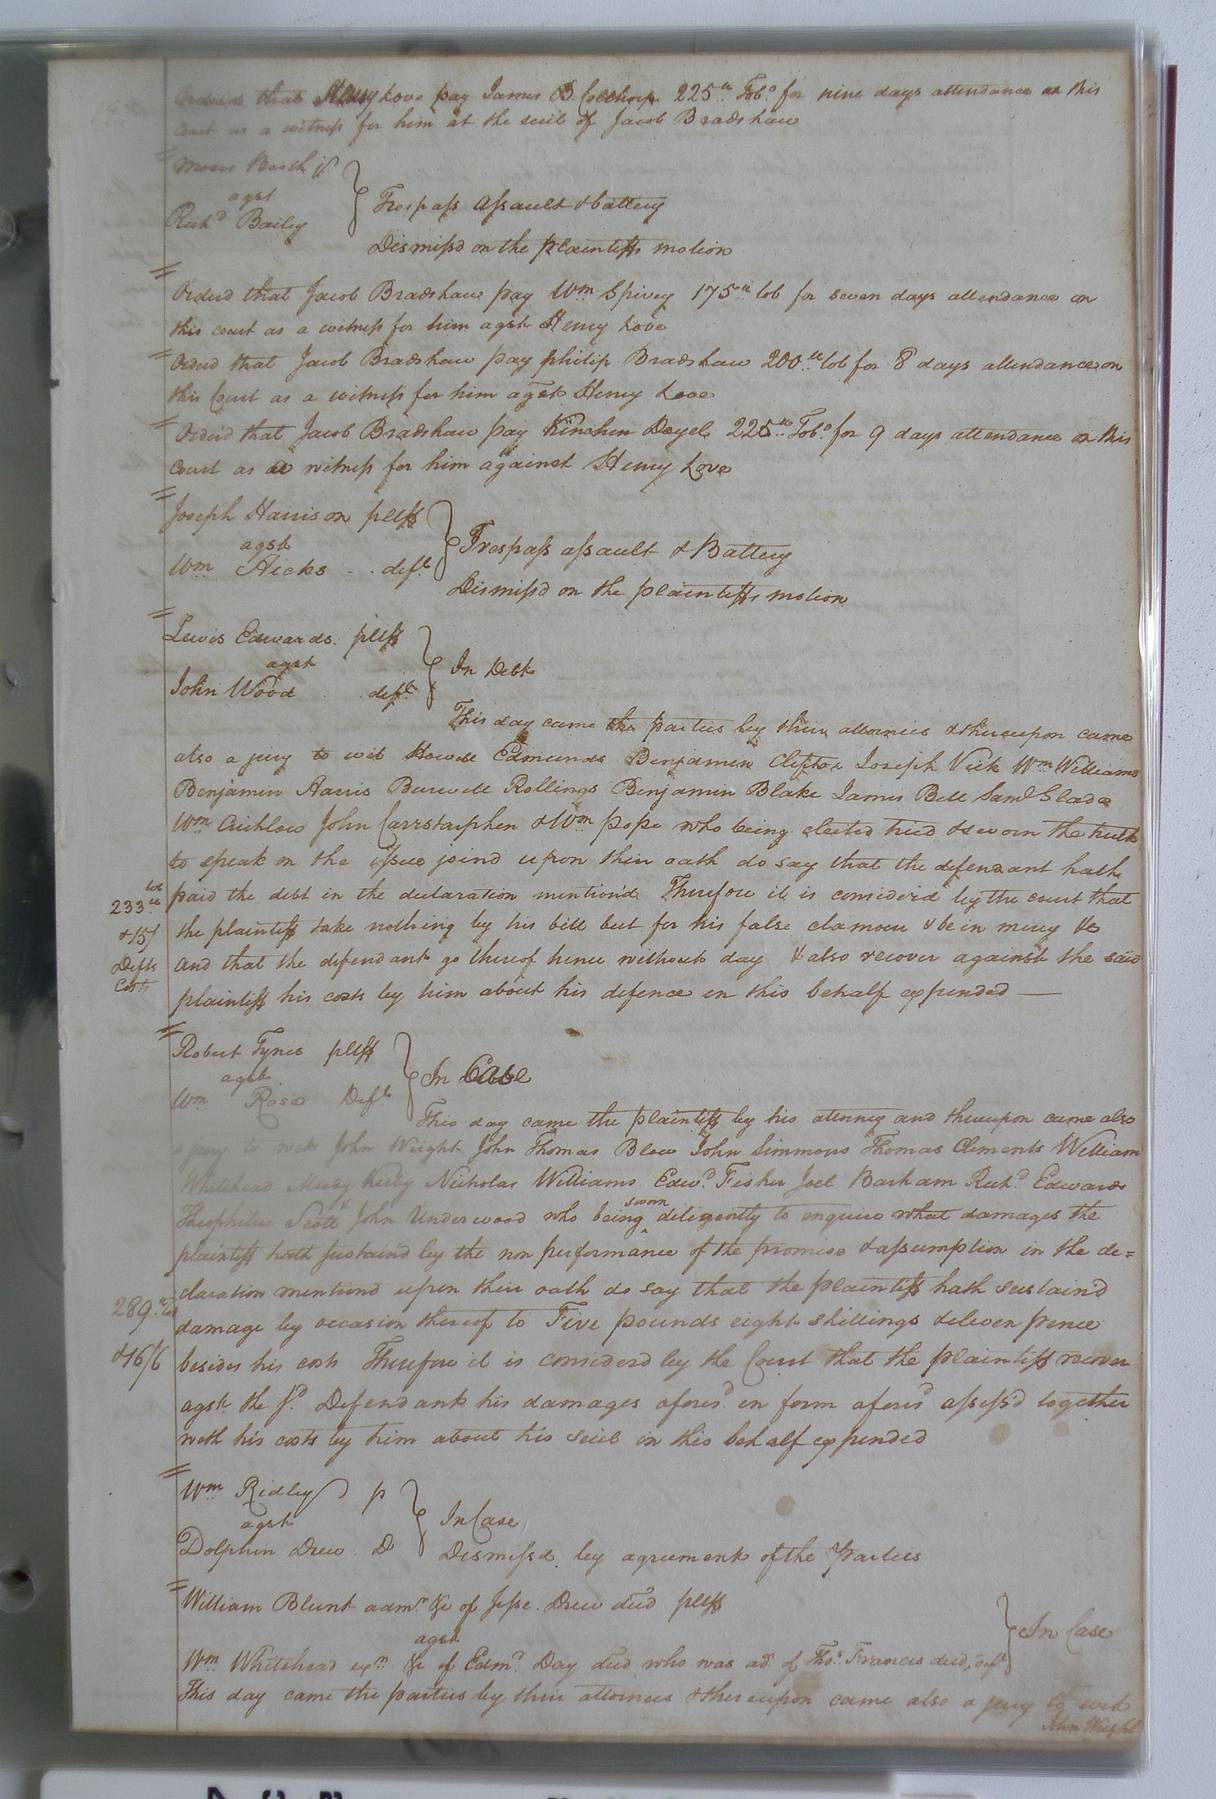 Ordered that Henry Love pay James B. 225 lb Tobo for nine days attendance on this
court as a witness for him at the suit of Jacob Bradshaw
Moses Booth jr
agst
Richd Bailey
Trespass assault & battery
Dismissd on the plaintiffs motion
Orderd that Jacob Bradshaw pay Wm Spivey 175 lb tob for seven days attendance on
this court as a witness for him agst Henry Love
Orderd that Jacob Bradshaw pay philip Bradshaw 200 lb tob for 8 days attendance on
this Court as a witness for him agst Henry Love
Orderd that Jacob Bradshaw pay Kinchen Doyel 225 lb Tobo for 9 days attendance on this
court as a witness for him against Henry Love
Joseph Harrison pltff
agst
Wm Hicks deft
Trespass assault & Battery
Dismissd on the plaintiffs motion
Lewis Edwards pltff
agst
John Wood deft
In Debt
This day came the parties by their attornies & thereupon came
also a jury to wit Howell Edmunds Benjamin Clifton Joseph Vick Wm Williams
Benjamin Harris Burwell Rollings Benjamin Blake James Bell Saml
Wm Crichlow John Carrstarphen & Wm pope who being elected tried & sworn the truth
to speak on the issue joind upon their oath do say that the defendant hath
paid the debt in the declaration mention'd Therefore it is consider'd by the court that
the plaintiff take nothing by his bill but for his false clamour & be in mercy &c
and that the defendant go thereof hence without day & also recover against the said
plaintiff his costs by him about his defence in this behalf expended
233 lb tob
& 15/
Defts
Costs
Robert Tynes pltff
agst
Wm Rose Deft
In Case
This day came the plaintiff by his attorney and thereupon came also
a jury to wit John Wright John Thomas Blow John Simmons Thomas Clements William
Whitehead Kirby Nicholas Williams Edwd Fisher Joel Barham Richd Edwards
Theophilus Scott John Underwood who being sworn diligently to enquire what damages the
plaintiff hath sustaind by the non performance of the promise & assumption in the de=
claration mentiond upon their oath do say that the plaintiff hath sustain'd
damage by occasion thereof to Five pounds eight shillings & eleven pence
besides his costs Therefore it is considerd by the Court that the plaintiff recover
agst the sd Defendant his damages aforesd in form aforesd assess'd together
with his costs by him about his suit in this behalf expended
289 lb tob
& 16/6
Wm Ridley p
agst
Dolphin Drew D
In Case
Dismissd by agreement of the Parties
William Blunt admr &c of Jesse Drew decd pltff
agst
Wm Whitehead exr &c of Edmd Day decd who was ad. of Thos Francis decd, deft
In Case
This day came the parties by their attornies & thereupon came also a jury to wit
John Wright